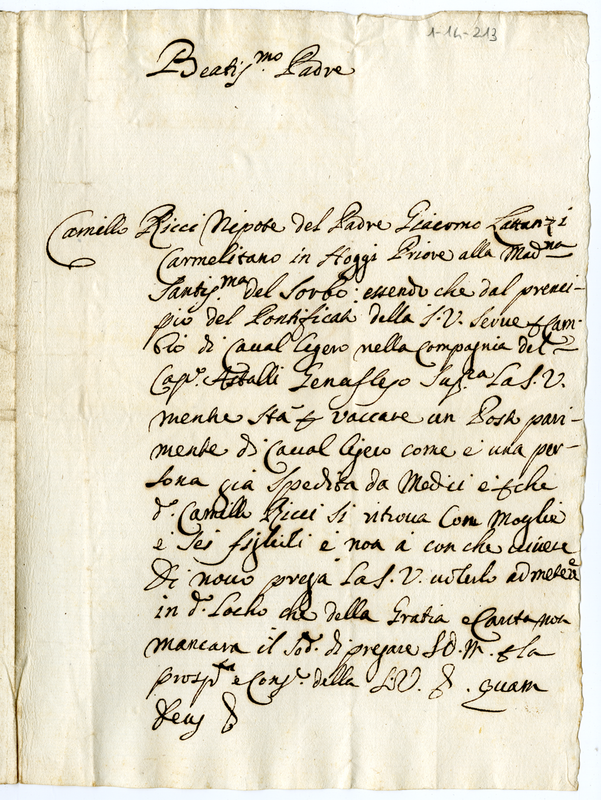 1-14-213
Beatis.mo Padre
Camillo Ricci Nipote del Padre Giacomo Lattanzi
Carmelitano in Hoggi Priore alla Mad.na
Santis.ma del Sorbo: essendo che dal princi-
pio del Pontificato della S.V. serve p Cam-
bio di Caval legero nella Compagnia del
Cap.o Astalli Genuflesso Sup.ca La S.V.
mentre sta p vaccare un Posto pari-
mente di Caval legero come è una per-
sona già spedita da Medici e p che
d.o Camillo Ricci si ritrova Com Moglie
e sei figlioli e non à con che vivere
Di novo prega La S.V. volerlo admetere
in d.o Locho che della Gratia e Carita non
mancara il Sod.o di pregare S.D.M. p la
prosp.ta e Cons.e della S.V. &. quam
Deus &